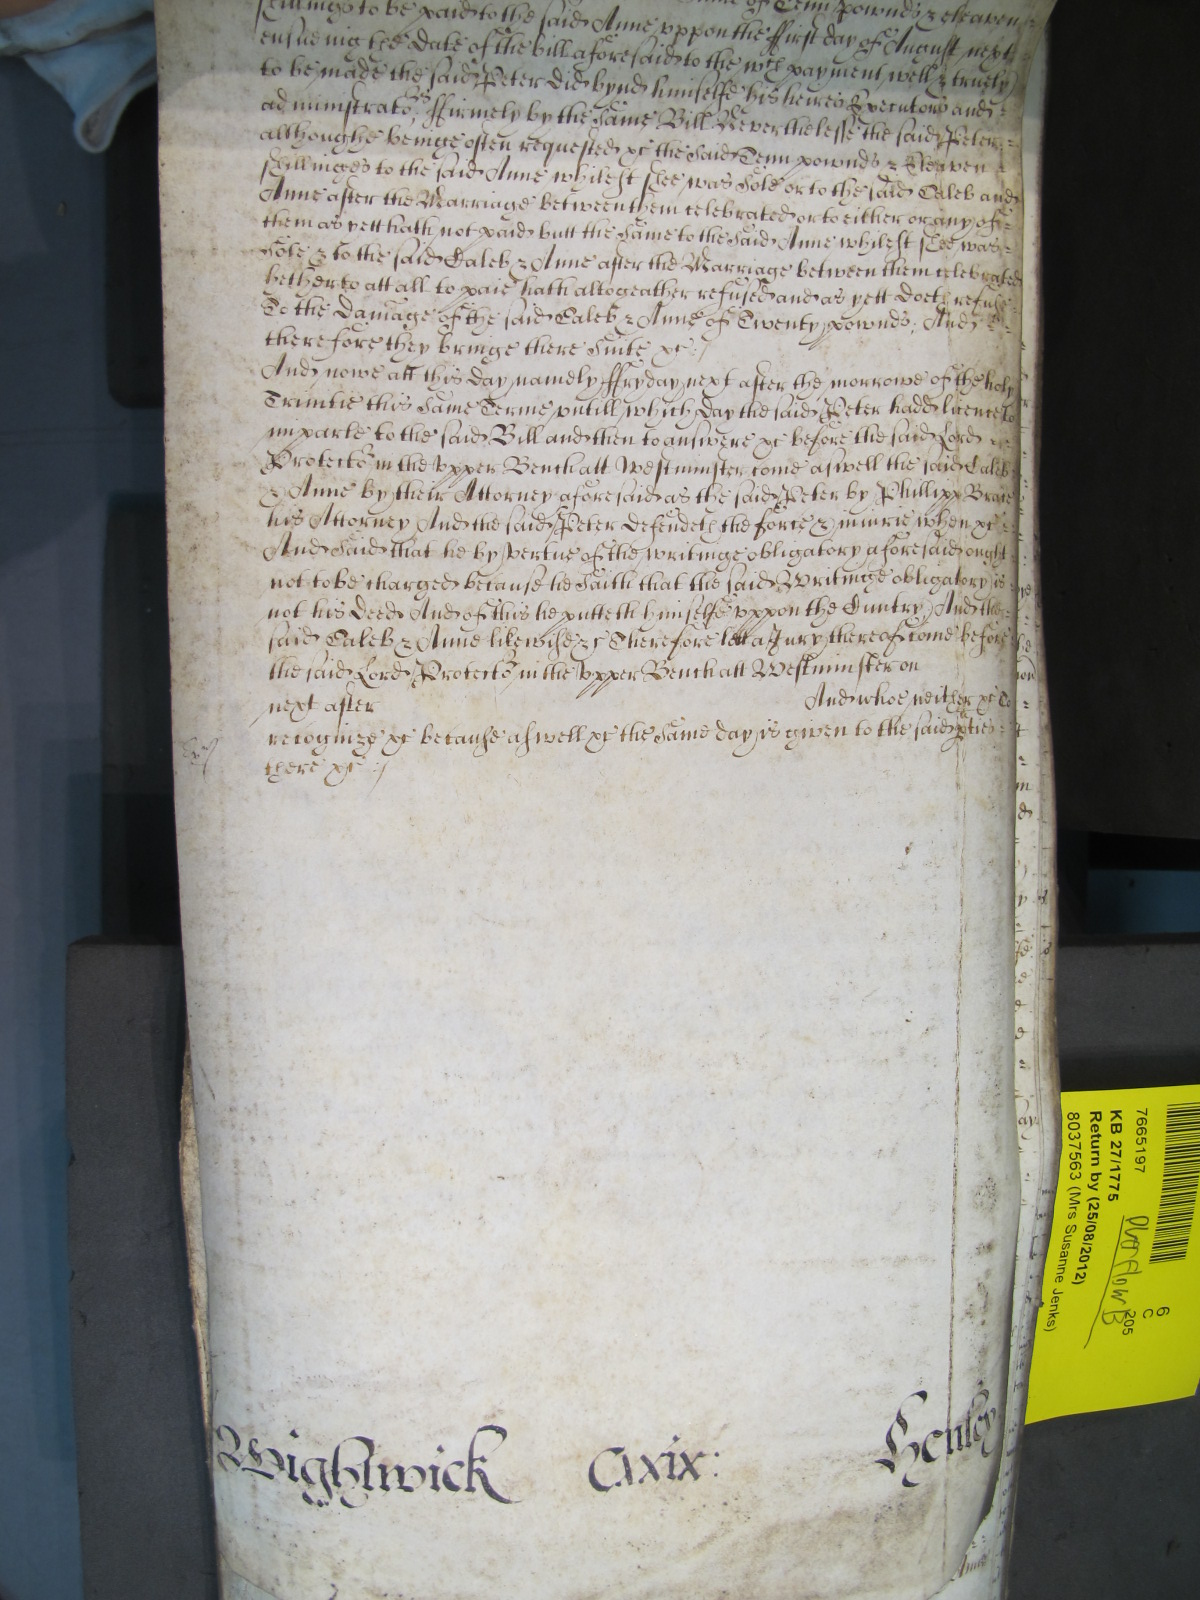 shillings to be paid to the said Anne uppon the ffirst day of August next
ensueing the date of the bill aforesaid to the wch payment well & truely
to be made the said Peter did bynd himselfe his heires Executors and
administrators ffirmely by the same Bill Neverthelesse the said Peter
althoughe beinge often requested &c the said Tenn pownds & Eleaven
shillinges to the said Anne whilest shee was sole or to the said Caleb and
Anne after the Marriage between them celebrated or to either or any of
them as yett hath not paid butt the same to the said Anne whilest shee was
sole & to the said Caleb & Anne after the Marriage between them celebrated
hetherto att all to paie hath altogeather refused and as yett doeth refuse
To the damage of the said Caleb & Anne of Twenty pownds; And
therefore they bringe there suite &c:/
And nowe att this day namely ffryday next after the morrowe of the holy
Trinitie this same Terme untill which day the said Peter hadd licence to
imparle to the said Bill and then to answere &c before the said Lord
Protector in the Upper Bench att Westminster come aswell the said Caleb
& Anne by their Attorney aforesaid as the said Peter by Phillipp
his Attorney And the said Peter defendeth the force & iniurie when &c
And said that he by vertue of the writinge obligatory aforesaid ought
not to be charged because he saith that the said Writinge obligatory is
not his deed And of this he putteth himselfe uppon the Cuntry And the
said Caleb & Anne likewise &c Therefore lett a Jury thereof come before
the said Lord Protector in the Upper Bench att Westminster on
next after And whoe neither &c To
recognize &c because aswell &c the same day is given to the said pties
there &c :/
Wightwick Cxxix: Henley
7665197
KB 27/1775
Return by (25/08/2012)
8037563 (Mrs Susanne Jenks)
Overflow B
6
C
205